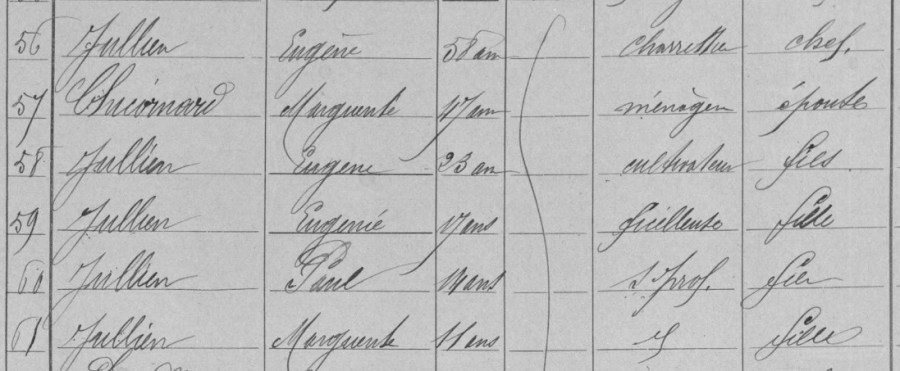 56 Jullien Eugène 58 an charretier chef.
57 Marguerite 47 ans ménagère épouse
58 Jullien Eugene 23 an cultivateur fils
59 Jullien Eugénie 17 ans fille
60 Jullien Paul 14 ans s. prof. fils
61 Jullien Marguerite 11 ans fille